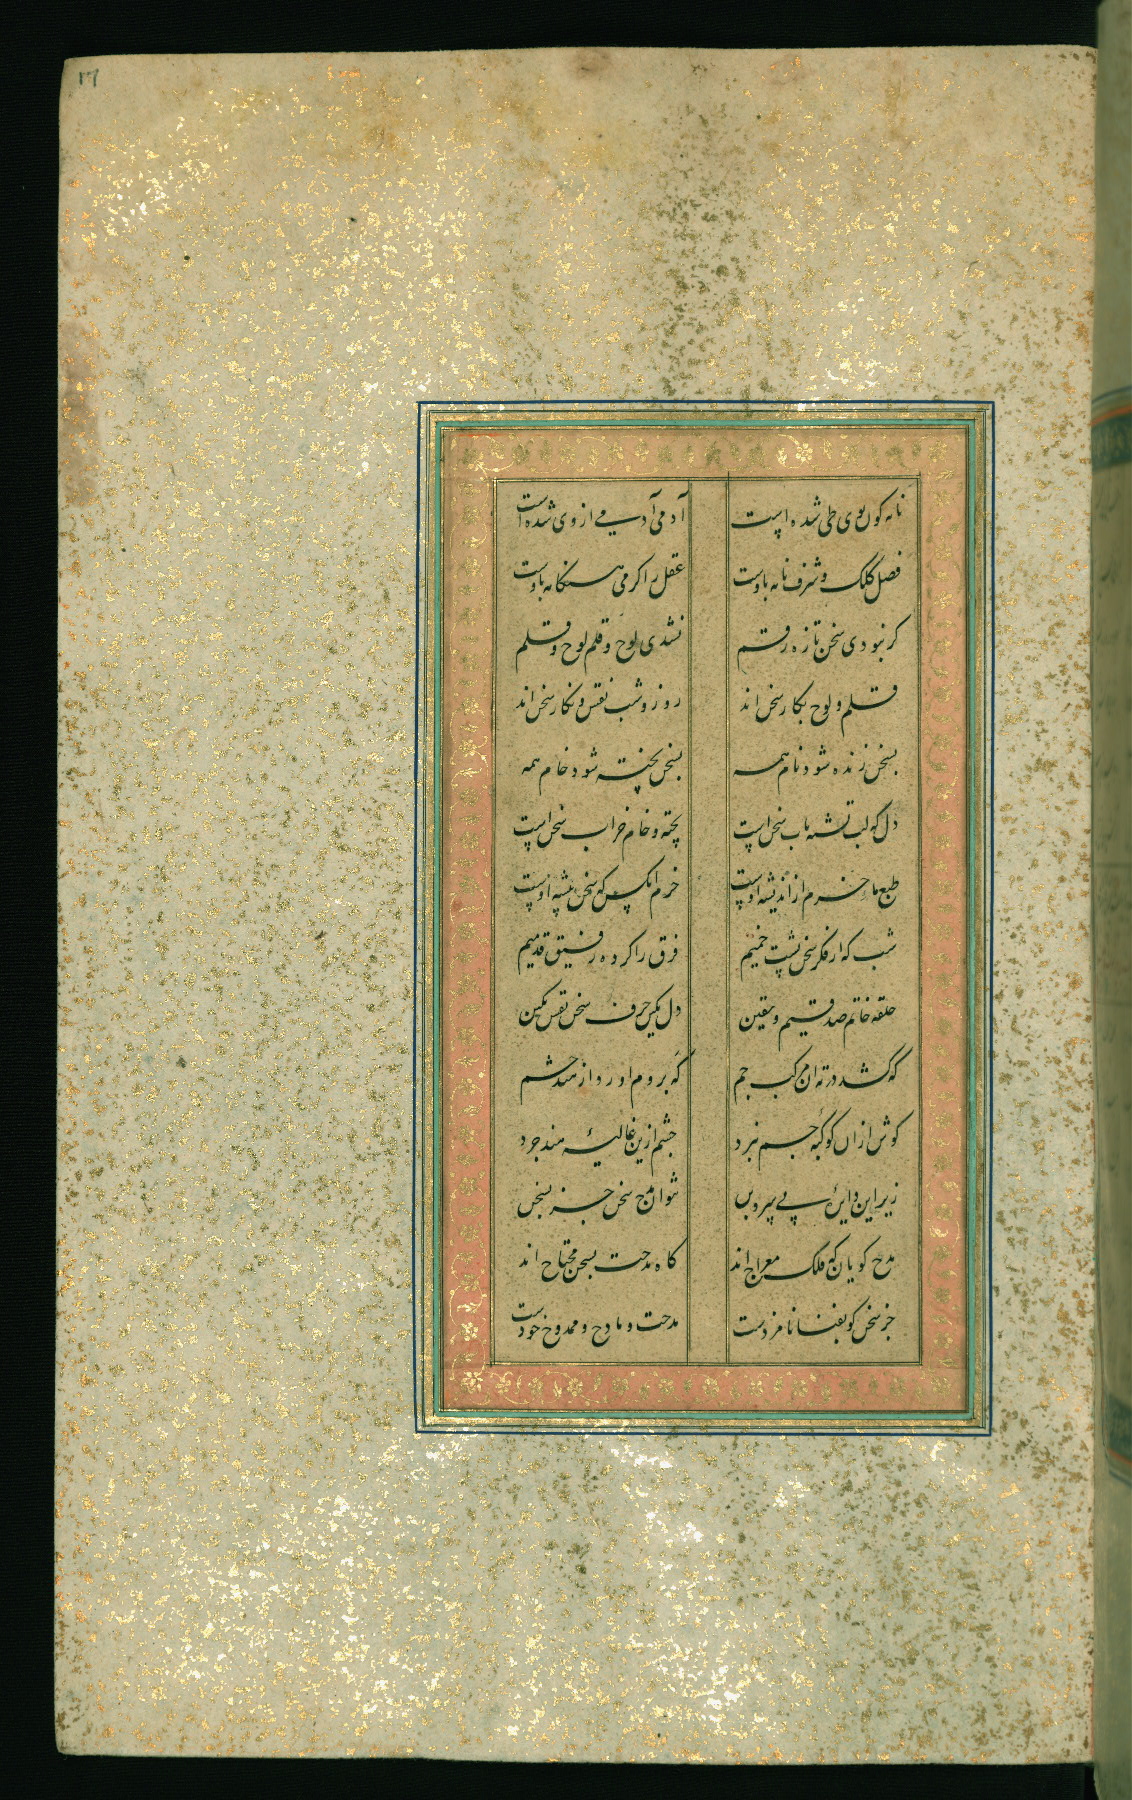 ۱۶
نامه کون بوی طی شده است آدمی آدمی از وی شده است
فضل کلک و شرف نامه باوست عقل را گرمی هنگامه باوست
گر نبودی سخن تازه رقم نشدی لوح و قلم لوح و قلم
قلم و لوح بکار سخن اند روز و شب نقش و نگار سخن اند
بسخن زنده شود نام همه بسخن پخته شود خام همه
دل که لب تشنه باب سخن است پخته و خام خراب سخن است
طبع ما خرم از اندیشه اوست خرم انکس که سخن پیشه اوست
شب که از فکر سخن پشت خمیم فرق را کرده رفیق قدمیم
حلقه خاتم صدقیم و یقین دل نگین حرف سخن نقش نگین
که کشد در ته ان مرکب جم که بروم اورد از هند حشم
گوش ازان کوکبه جم نبرد چشم ازین غالیه هند خرد
زیر این دایره بی سر و بن نتوان مدح سخن جز بسخن
مدح گویان که فلک معراج اند گاه مدحت بسخن محتاج اند
جز سخن کو بفنا نامزدست مدحت و مادح و ممدوح خودست